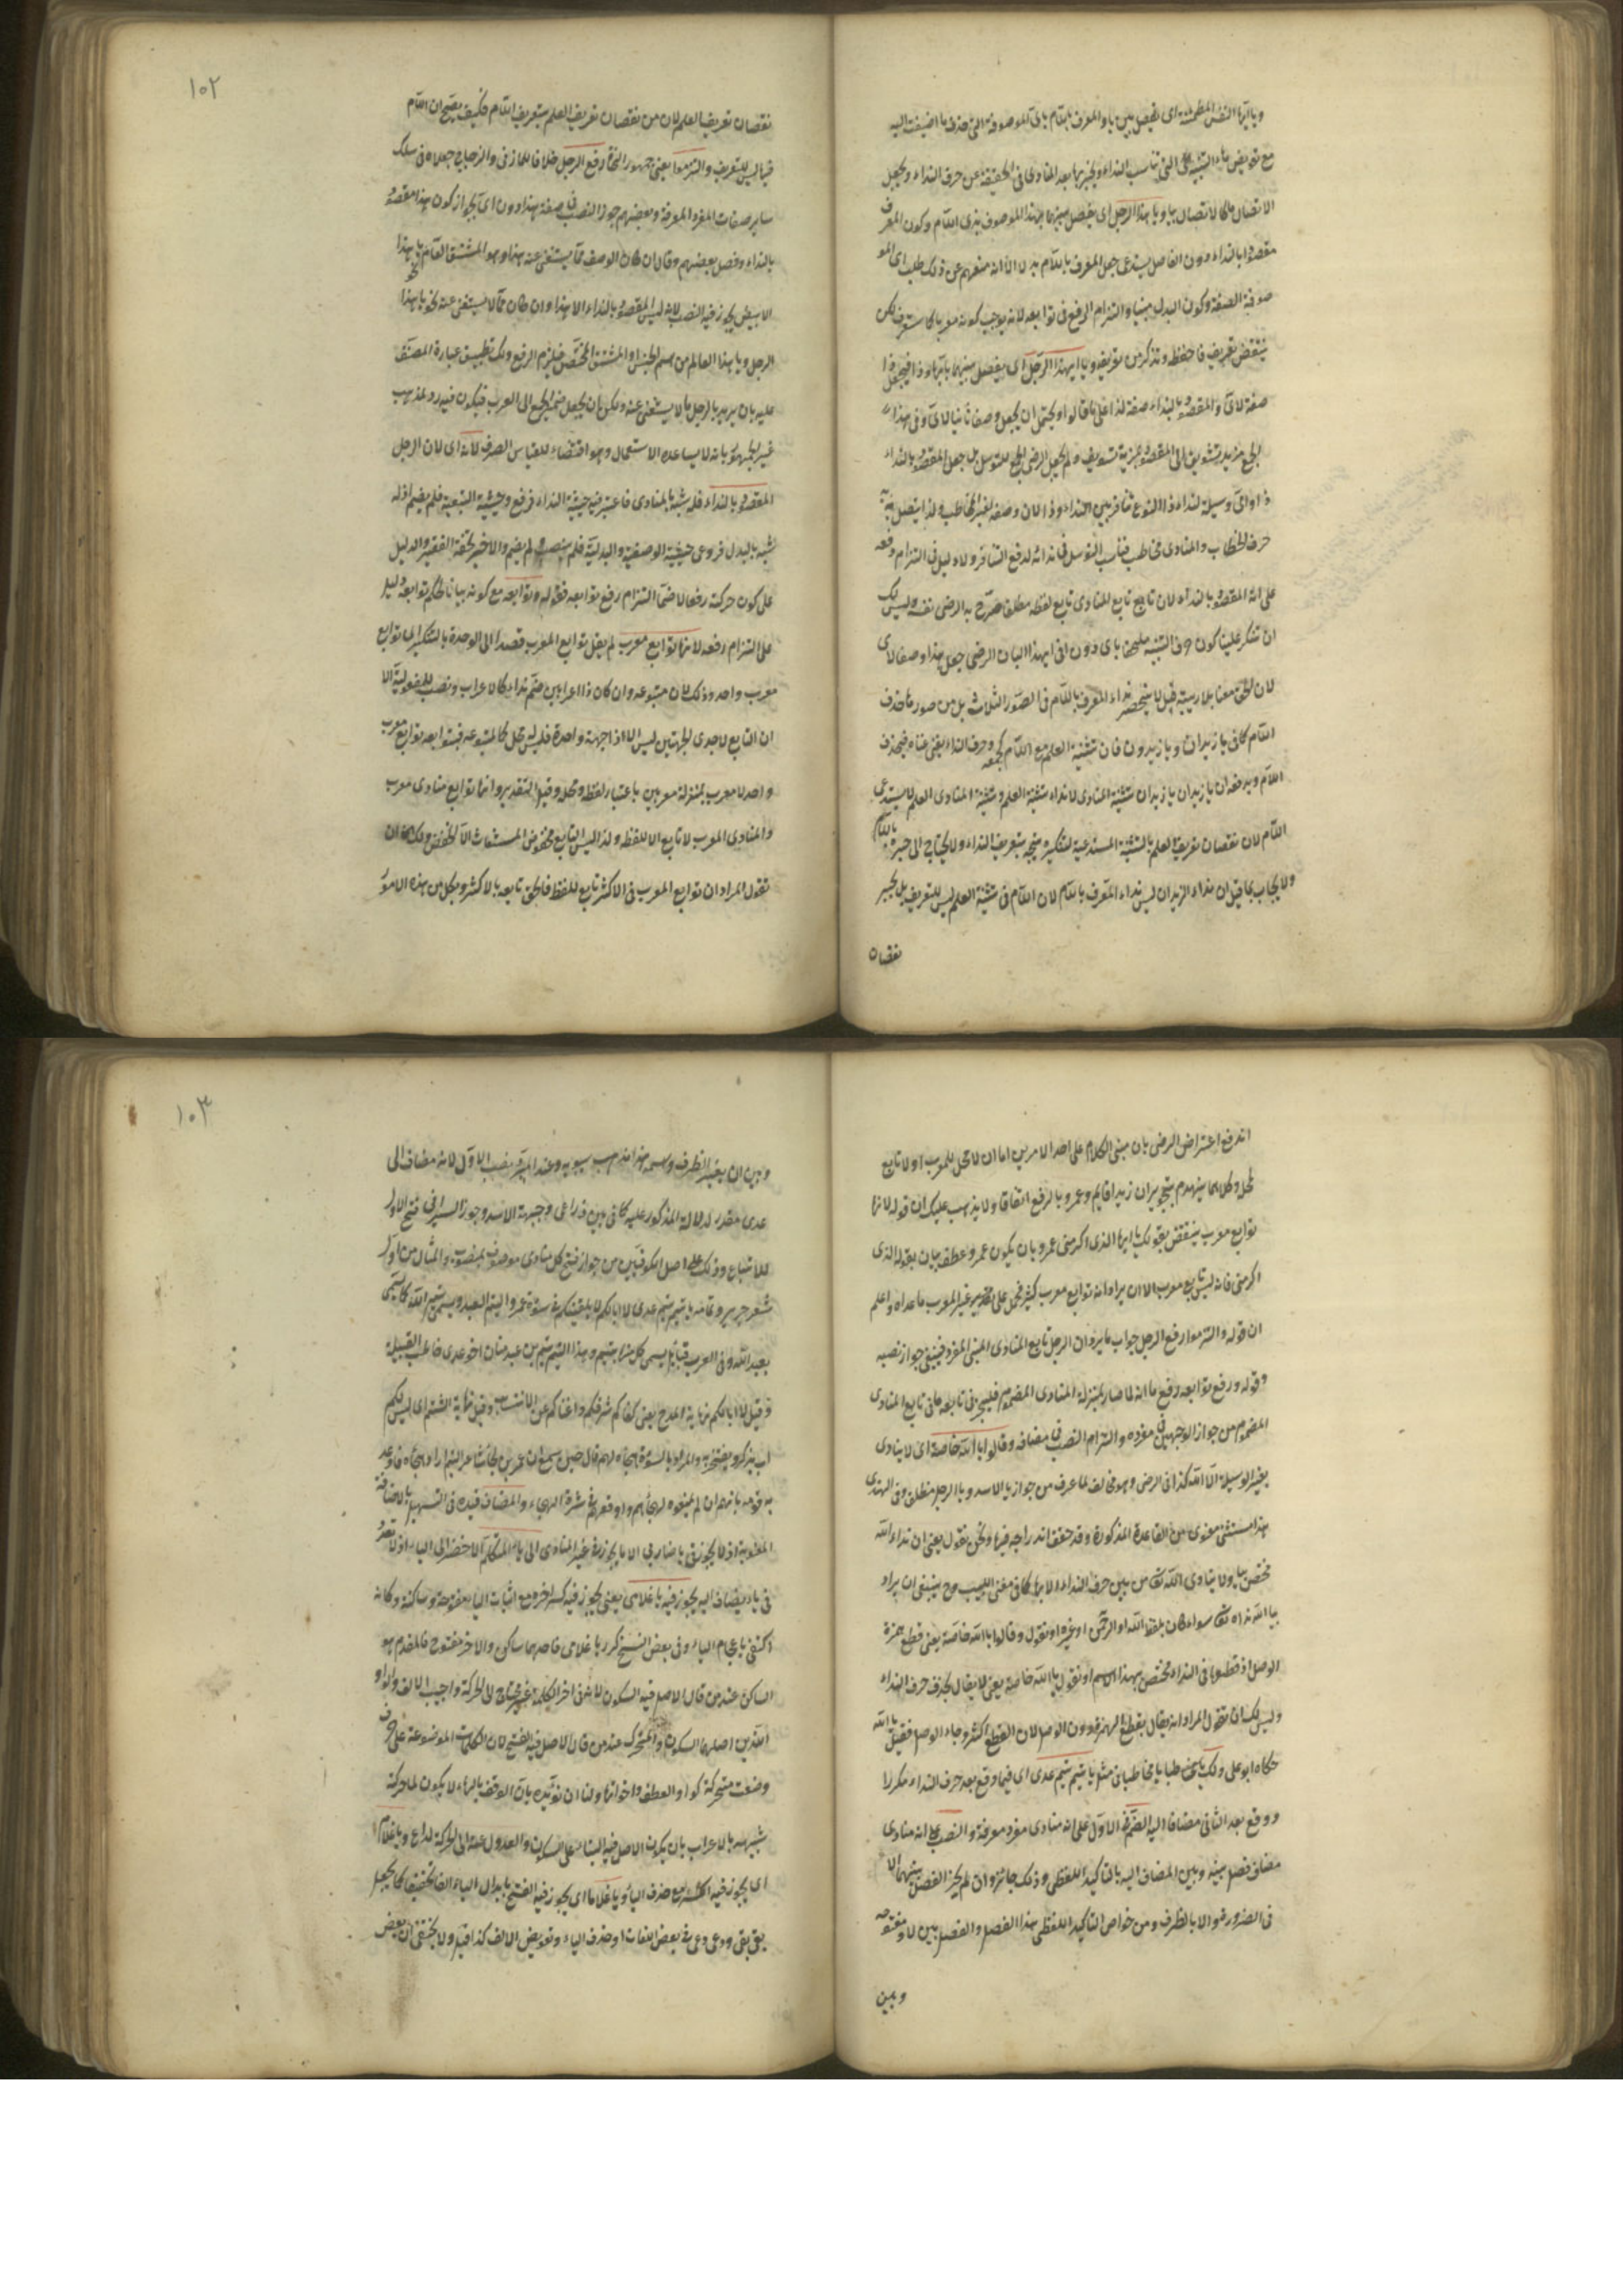 ويا ايها النفس المطمئنة اى بفصل بين يا والمعرف باللام باى الموصوفة التى حذف ما اضيفت اليه
مع تعويض هاء التنبيه التى تناسب النداء
الاتصال بيا ويا هذا الرجل اى بفصل بينهما بهذا الموصوف بذى اللام وكون المعرف
مقصودا بالنداء دون الفاصل يستدعى جعل المعرف باللام بدلا الا انه منعهم عن ذلك طلب اى المو
صوفية الصفة وكون البدل مبنيا والتزام الرفع فى توابعه لانه يوجب كونه معربا كما ستعرف لكن
ينتقض تعريف فاحفظه وتذكر من تعريفه ويا ايهذا الرجل اى بفصل بينهما بايها وذا فيجعل ذا
صفة لاى والمقصود بالنداء صفة لذا على ما قالوا ويحتمل ان يجعل وصفا ثانيا لاى وفى هذا
الجمع مزيد تشويق الى المقصود بمزية تشويف ولم يجعل الرضى الجمع للتوسل بل جعل المقصود بالنداء
ذا واى وسيلة لنداء ذا لنوع تنافر بين النداء وذا لان وضعه لغير المخاطب ولذا يتصل به
حرف الخطاب والمنادى مخاطب فناسب التوسل فى ندائه لدفع التنافر ولا دليل فى التزام رفعه
على انه المقصود بالنداء لان تابع تابع المنادى تابع لفظه مطلقا صرح به الرضى نفسه وليس لك
ان تنكر علينا كون ها التنبيه ملحقا باى دون ذا فى ايهذا اليان الرضى جعل هذا وصفا لاى
لان الحق معنا بلا ريبة قيل لا ينحصر نداء المعرف باللام فى الصور الثلاث بل من صوره ما حذف
اللام كما فى يا زيدان ويا زيدون فان تثنية العلم مع اللام كجمعه وحرف النداء يغنى عناه فيحذف
اللام ويدفعه ان يا زيدان يا زيدان تثنية المنادى لا نداء تثنية العلم وتثنية المنادى العلم لا يستدعى
اللام لان نقصان تعريف العلم بالتثنية المستدعية لتنكيره ينجبر بتعريف النداء ولا يحتاج الى جبره باللام
ولا يجاب بما قيل ان نداء الزيدان ليس نداء المعرف باللام لان اللام فى تثنية العلم ليس للتعريف بل لجبر
نقصان
١٠٢
نقصان تعريف العلم لان من نقصان تعريف العلم بتعريف اللام فكيف يصح ان اللام
فيها ليس للتعريف والتزموا يعنى جمهور النحاة رفع الرجل خلافا للمازنى والزجاج جعلاه فى سلك
ساير صفات المفرد المعرفة وبعضهم جوز النصب فى صفة هذا دون اى لجواز كون هذا مقصودا
بالنداء وفصل بعضهم وقال ان كان الوصف مما يستغنى عنه هذا وهو المشتق العام نحو يا هذا
الابيض يجوز فيه النصب لانه ليس المقصود بالنداء الا هذا وان كان مما لا يستغنى عنه نحو يا هذا
الرجل ويا هذا العالم من اسم الجنس او المشتق المختص فيلزم الرفع ولك تطبيق عبارة المصنف
عليه بان يريد بالرجل ما لا يستغنى عنه ولكن ان يجعل ضمير الجمع الى العرب فيكون فيه رد لمذهب
غير الجمهور بانه لا يساعده الاستعمال وهو اقتضاء للقياس الصرف لانه اى لان الرجل
المقصود بالنداء فله شبه بالمنادى فاعتبر فيه حيثية النداء فرفع وحيثية التبعية فلم يضم اذ له
شبه بالبدل فروعى حيثية الوصفية والبدلية فلم ينصب ولم يضم والاخير لحقة الفقير والدليل
على كون حركته رفعا لا ضما التزام رفع توابعه فقوله وتوابعه مع كونه بيانا لحكم توابعه دليل
على التزام رفعه لانها توابع معرب لم يقل توابع المعرب قصدا الى الوحدة بالتنكير اى توابع
معرب واحد وذلك لان متبوعه وان كان ذا اعرابين ضم نداء كالاعراب ونصب للمفعولية الا
ان التابع لاحدى الجهتين ليس الا اذا جهة واحدة فليس محل كالمتبوعه فتوابعه توابع معرب
واحد لا معرب بمنزلة معربين باعتبار لفظه ومحله وقيل التقدير وانها توابع منادى معرب
والمنادى المعرب لا تابع الا للفظه ولذا ليس التابع مخفوض المستغاث الا الخفض ولك ان
تقول المراد ان توابع المعرب فى الاكثر تابع للفظه فالحق تابعه بالاكثر وبكل من هذه الامور
اندفع اعتراض الرضى بان مبنى الكلام على احد الامرين اما ان لا محل للمعرب او لا تابع
لمحله وكلاهما ينهدم بتجويز ان زيدا قايم وعمرو بالرفع اتفاقا ولا يذهب عليك ان قوله لانها
توابع معرب ينتقض بقولك يا ايها الذى اكرمنى عمرو بان يكون عمرو عطف بيان بقوله الذى
اكرمنى فانه ليس تابع معرب الا ان يراد انه توابع معرب كثير فحمل على غير المعرب ما عداه واعلم
ان قوله والتزموا رفع الرجل جواب ما يرد ان الرجل تابع المنادى المبنى المفرد فينبغى جواز نصبه
وقوله ورفع توابعه لرفع ما انه لما صار بمنزلة المنادى المضموم فليجر فى تابعه ما فى تابع المنادى
المضموم من جواز الوجهين فى مفرده والتزام النصب فى مضافه وقالوا يا الله خاصة اى لا ينادى
بغير الوسيلة الا الله كذا فى الرضى وهو مخالف لما عرف من جواز يا الاسد ويا الرجل منطلق وفى الهندى
هذا مستثنى معنوى من القاعدة المذكورة وقد حقق اندراجه فيها ونحن نقول يعنى ان نداء الله
مختص بيا ولا ينادى الله تعالى من بين حرف النداء الا بها كما فى مغنى اللبيب وح ينبغى ان يراد
بيا الله نداه تعالى سواء كان بلفظ الله او الرحمن او غيره او نقول وقالوا يا الله خاصة يعنى قطع همزة
الوصل اذ قطعها فى النداء مختص بهذا الاسم او نقول يا الله خاصة يعنى لا يقال بحذف حرف النداء
وليس لك ان تقول المراد انه يقال بقطع الهمزة دون الوصل لان القطع اكثر وجاء الوصل فقيل يا الله
حكاه ابو على ولك يا مخاطبا يا مخاطبا فى مثل يا تيم تيم عدى اى فيما وقع بعد حرف النداء مكررا
ووقع بعد الثانى مضافا اليه الضم فى الاول على انه منادى مفرد معرفة والنصب على انه منادى
مضاف فصل بينه وبين المضاف اليه بالتاكيد اللفظى وذلك جائز وان لم يجز الفصل بينهما الا
فى الضرورة ولا بالظرف ومن خواص التاكيد اللفظى هذا الفصل والفصل بين لا ومفتوحه
وبين
١٠٣
وبين ان بغير الظرف واسمه هذا مذهب سيبويه وعند المبرد نصب الاول لانه مضاف الى
عدى مقدر لدلالة المذكور عليه كما فى بين ذراعى وجبهة الاسد وجوز السيرافى فتح الاول
للاتباع وذلك على اصل الكوفيين من جواز فتح كل منادى موصوف بمنصوب والمثال من اول
شعر جرير وتمامه يا تيم تيم عدى لا ابا لكم لا يلقينكم فى سوءة عمر والتيم العبد وسمى تيم الله كما يسمى
بعبد الله وفى العرب قبائل يسمى كل منها بتيم وهذا التيم تيم بن عبد مناة اخو عدى فاعجب القبيلة
وقيل لا ابا لكم نهاية المدح يعنى كفاكم شرفكم واغناكم عن الانتساب وقيل نهاية الشتم اى ليس لكم
اب يذكر ويفتخر به والمراد بالسوءة الهجاء لهم قال حين سمع ان عمر بن لجأ شاعر التيم اراد هجاه فاوعد
به قومه بانهم ان لم يمنعوه لهجاهم واوقعهم فى شدة الهجاء والمضاف قيده فى التسهيل بالاضافة
المعنوية اذ لا يجوز فى يا ضاربى الا ما يجوز فى غير المنادى الى ياء المتكلم الاخصر الى الياء اذ لا تعدد
فى ياء يضاف اليه يجوز فيه يا غلامى يعنى يجوز فيه كسر اخره مع اثبات الياء مفتوحة وساكنة وكانه
اكتفى باعجام الياء وفى بعض النسخ كرر يا غلامى فاحدهما ساكن والاخر مفتوح فالمقدم هو
الساكن عند من قال الاصل فيه السكون لانه فى اخر الكلمة غير محتاج الى الحركة واجيب الالف والواو
اللذين اصلهما السكون والمتحرك عند من قال الاصل فيه الفتح لان الكلمات الموضوعة على حرف
وضعت متحركة كواو العطف واخواتها ولنا ان نؤيده بان الوقف بالهاء لا يكون لما حركته
شبيهه بالاعراب بان يكون الاصل فيه البناء على السكون والعدول عنه الى الحركة لداع ويا غلام
اى يجوز فيه الكسر مع حذف الياء ويا غلاما اى يجوز فيه الفتح بابدال الياء الفا تخفيفا كما يجعل
بقى بقى ودعى دعى فى بعض اللغات او حذف الياء وتعويض الالف كذا قيل ولا يختفى ان بعض